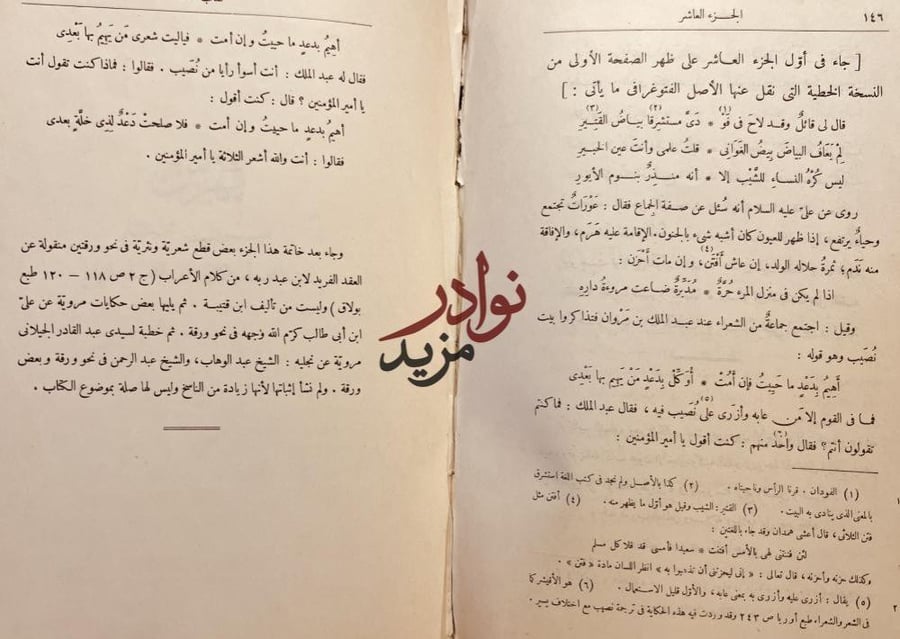 ١٤٦
الجزء العاشر
[ جاء فى أوّل الجزء العاشر على ظهر الصفحة الأولى من
النسخة الخطية التى نقل عنها الأصل الفتوغرافى ما يأتى : ]
قال لى قائلٌ وقد لاح فى فَوْ * دَىَّ مستشرقا بياضُ القَتِير
لِمْ يَعَافُ البياضَ بِيضُ الغَوَانى * قلتُ علمى وأنت عين الخبير
ليس كُرْهُ النساء للشَّيْب إلا * أنه منذِرٌ بنوم الأيور
روى عن علىّ عليه السلام أنه سُئل عن صفة الجماع فقال : عَوْرَاتٌ تجتمع
وحياءٌ يرتفع، إذا ظهر للعيون كان أشبه شىء بالجنون. الإقامة عليه هَرَم، والإفاقة
منه نَدَم؛ ثمرةُ حلاله الولد، إن عاش أَفْتَن(٤)، وإن مات أَحْزَن :
اذا لم يكن فى منزل المرء حُرَّةٌ * مُدَبِّرةٌ ضاعت مروءةُ دارِهِ
وقيل : اجتمع جماعةٌ من الشعراء عند عبد الملك بن مَرْوان فتذاكروا بيت
نُصَيب وهو قوله :
أَهِيمُ بِدَعْدٍ ما حَيِيتُ فإن أَمُتْ * أُوَكِّلْ بِدَعْدٍ مَنْ يَهِيمُ بها بَعْدِى
فما فى القوم إلا مَن عابه وأَزْرَى على(٥) نُصَيب فيه ، فقال عبد الملك : فماكنتم
تقولون أنتم؟ فقال واحدٌ منهم : كنت أقول يا أمير المؤمنين :
(١) الفودان . قرنا الرأس وناحيتاه . (٢) كذا بالأصل ولم نجد فى كتب اللغة استشرق
بالمعنى الذى ينادى به البيت . (٣) القتير : الشيب وقيل هو أوّل ما يظهر منه . (٤) أفتن مثل
فتن الثلاثى، قال أعشى همدان وقد جاء باللغتين :
لئن فتنتنى لهى بالأمس أفتنت * سعيدا فأمسى قد قلا كل مسلم
وكذلك حزنه وأحزنه، قال تعالى : « إنى ليحزننى أن تذهبوا به » انظر اللسان مادة « فتن » .
(٥) يقال : أزرى عليه وأزرى به بمعنى عابه، والأوّل قليل الاستعمال . (٦) هو الأقيشر كما
فى الشعر والشعراء طبع أوربا ص ٢٤٣ وقد وردت فيه هذه الحكاية فى ترجمة نصيب مع اختلاف يسير .
أهيمُ بدعدٍ ما حييتُ وإن أمت * فياليت شعرى مَن يَهيمُ بها بَعْدِى
فقال له عبد الملك : أنت أسوأ رأيا من نُصَيب . فقالوا : فماذاكنت تقول أنت
يا أمير المؤمنين ؟ قال : كنت أقول :
أهيمُ بدعدٍ ما حييتُ وإن أمت * فلا صلحتْ دَعْدٌ لِذِى خلَّةٍ بعدى
فقالوا : أنت والله أشعر الثلاثة يا أمير المؤمنين .
وجاء بعد خاتمة هذا الجزء بعض قطع شعريّة ونثريّة فى نحو ورقتين منقولة عن
العقد الفريد لابن عبد ربه ، من كلام الأعراب ( ج ٢ ص ١١٨ — ١٢٠ طبع
بولاق ) وليست من تأليف ابن قتيبة . ثم يليها بعض حكايات مرويّة عن علىّ
ابن أبى طالب كرّم الله وجهه فى نحو ورقة . ثم خطبة لسيدى عبد القادر الجيلانى
مرويّة عن نجليه : الشيخ عبد الوهاب، والشيخ عبد الرحمن فى نحو ورقة وبعض
ورقة . ولم نشأ إثباتها لأنها زيادة من الناسخ وليس لها صلة بموضوع الكتاب .
نوادر
مزيد